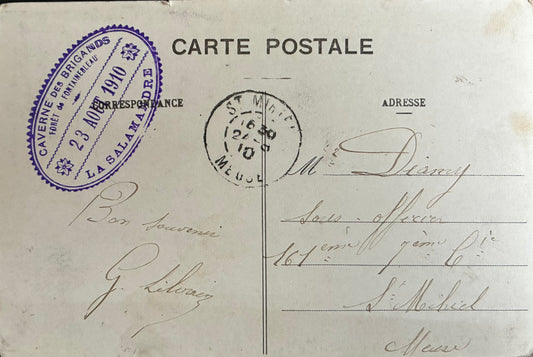 CARTE POSTALE
CAVERNE DES BRIGANDS
FORÊT de FONTAINEBLEAU
23 AOUT 1910
LA SALAMANDRE
CORRESPONDANCE
ADRESSE
ST MIHIEL
16 30
24 - 8
10
MEUSE
Bon souvenir
G.
M
Sous-officier
161ème 7ème Cie
St Mihiel
Meuse